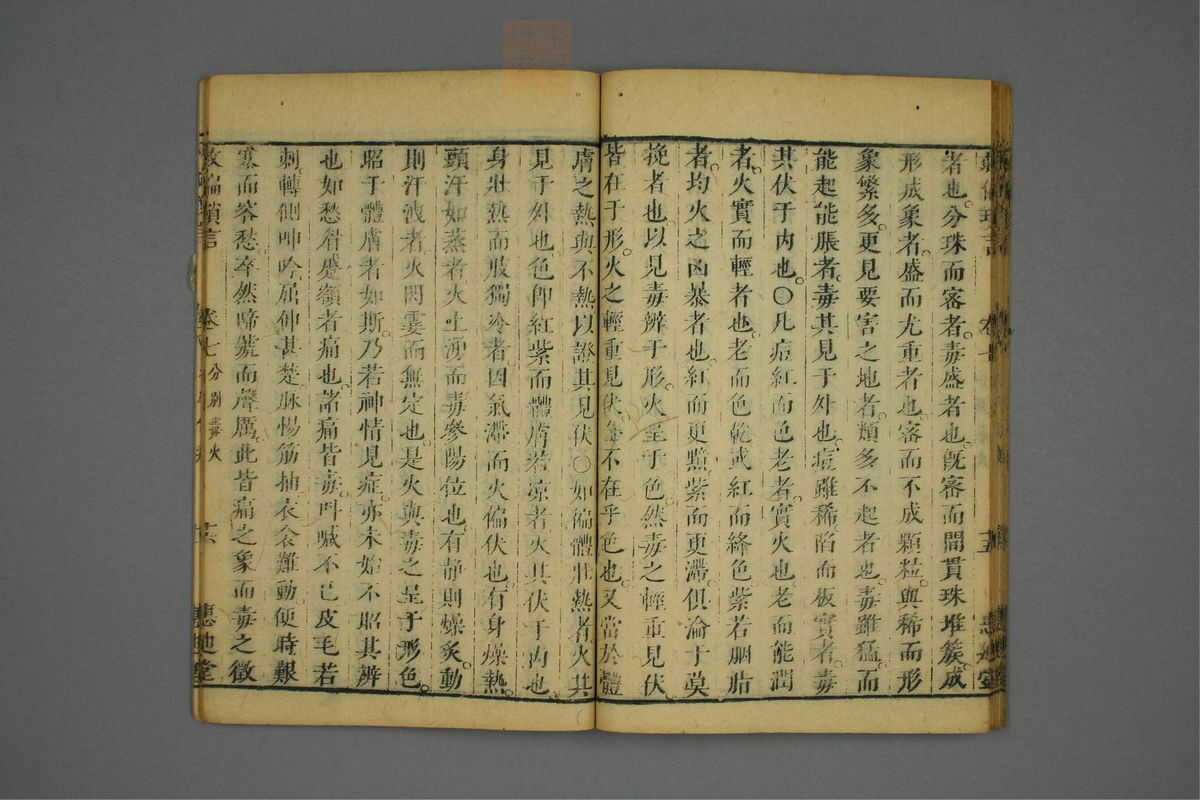 者也。分珠而密者。毒盛者也。既密而間貫珠堆簇。成
形成象者。盛而尤重者也。密而不成顆粒。與稀而形
象繁多。更見要害之地者。類多不起者也。毒雖猛。而
能起能脹者。毒其見于外也。痘雖稀。陷而板實者。毒
其伏于内也。〇凡痘紅而色老者。實火也。老而能潤
者。火實而輕者也。老而色乾或紅而絳色紫若胭脂
者。均火之凶暴者也。紅而更黯。紫而更滯。俱淪于莫
挽者也。以見毒辨于形。火呈于色。然毒之輕重見伏
皆在于形。火之輕重見伏。不在乎色也。又當於體
膚之熱與不熱以證其見伏〇如徧體壯熱者火其
見于外也。色即紅紫而體膚若凉者火其伏于内也。
身壯熱而肢獨冷者因氣滯而火偏伏也。有身燥熱。
頭汗如蒸者火上湧而毒參陽位也。有静則燥炙。動
則汗洩者。火閃霎而無定也。是火與毒之呈于形色。
昭于體膚者如斯。乃若神情見症。亦未始不昭其辨
也。如愁眉蹙額者痛也。諸痛皆毒。叫喊不已皮毛若
刺。轉側呻吟屈伸甚楚。脉惕筋抽衣衾難動。便時艱
澁而容愁。卒然啼號而聲厲。此皆痛之象而毒之徵
救偏瑣言 卷七 分别毒火 共 惠迪堂